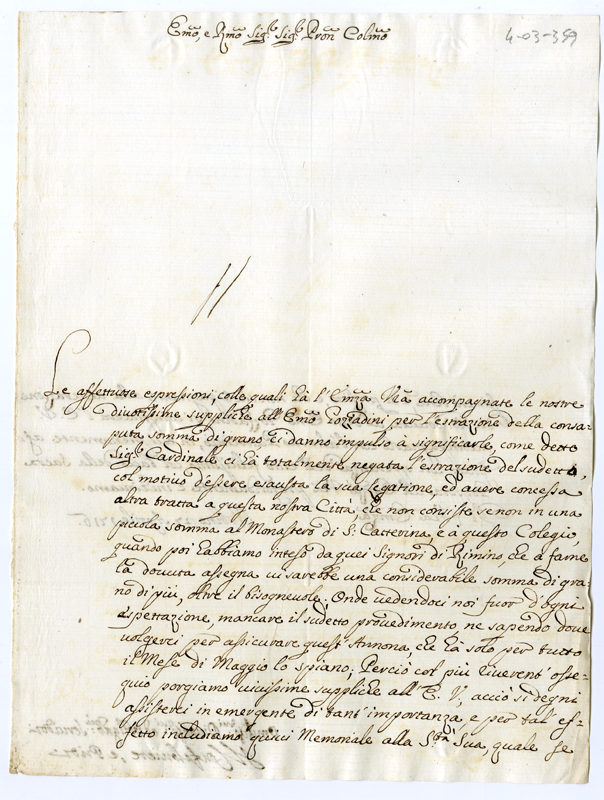 Emõ, e Rmõ Sig.r Sig.r Prõn Colmõ
4-03-359
Le affettuose espressioni, colle quali hà l'Emza Vrã accompagnate le nostre
divotissime suppliche all'Emõ Gozzadini per l'estrazione della consa-
puta somma di grano ci danno impulso à significarle, come detto
Sig.r Cardinale ci hà totalmente negata l'estrazione del sudetto,
col motivo d'essere esausta la sua legatione, ed avere concessa
altra tratta a questa nostra Città, che non consiste se non in una
picola somma al Monastero di S. Catterina, e à questo Colegio,
quando poi habbiamo inteso da quei Signori di Rimino, che à farne
la dovuta assegna vi sarebbe una considerabile somma di gra-
no di più, oltre il bisognevole. Onde vedendoci noi fuor d'ogni
espettazione, mancare il sudetto provedimento ne sapendo dove
volgerci per assicurare quest'Annona, che hà solo per tutto
il Mese di Maggio lo spiano; Perciò col più riverent' osse-
quio porgiamo vivissime suppliche all'E. V, acciò si degni
assisterci in emergente di tant'importanza, e per tal ef-
fetto includiamo quivi Memoriale alla S.tà Sua, quale se